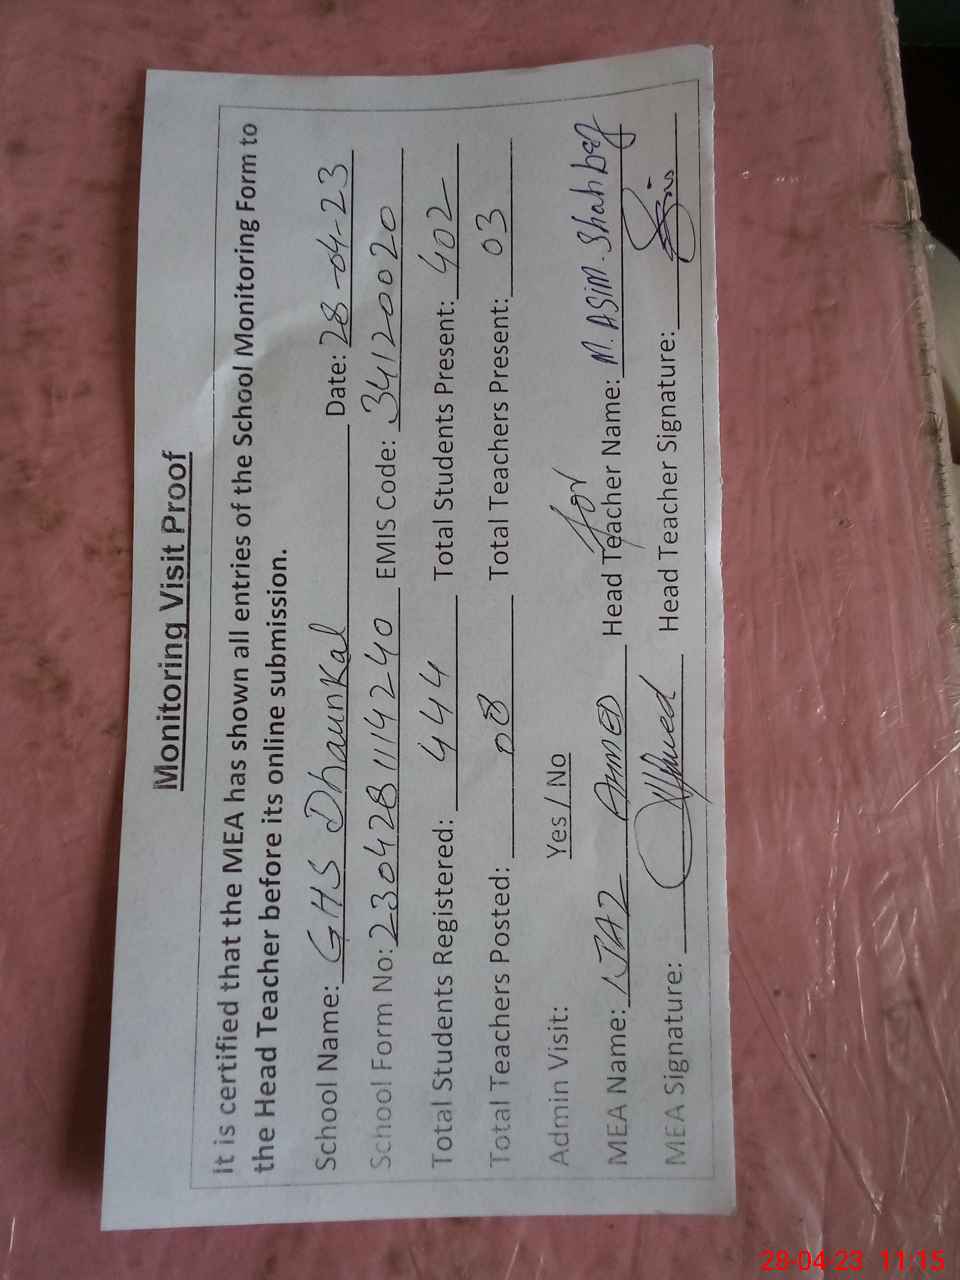 Monitoring Visit Proof
It is certified that the MEA has shown all entries of the School Monitoring Form to
the Head Teacher before its online submission.
School Name: GHS Dhaunkal Date: 28-04-23
School Form No: 230428 1114240 EMIS Code: 34120020
Total Students Registered: 444 Total Students Present: 402
Total Teachers Posted: 08 Total Teachers Present: 03
Admin Visit: Yes / No
for
MEA Name: IJAZ AHMED Head Teacher Name: M. ASIM. Shahbaz
MEA Signature: Ahmed Head Teacher Signature:
28-04-23 11:15